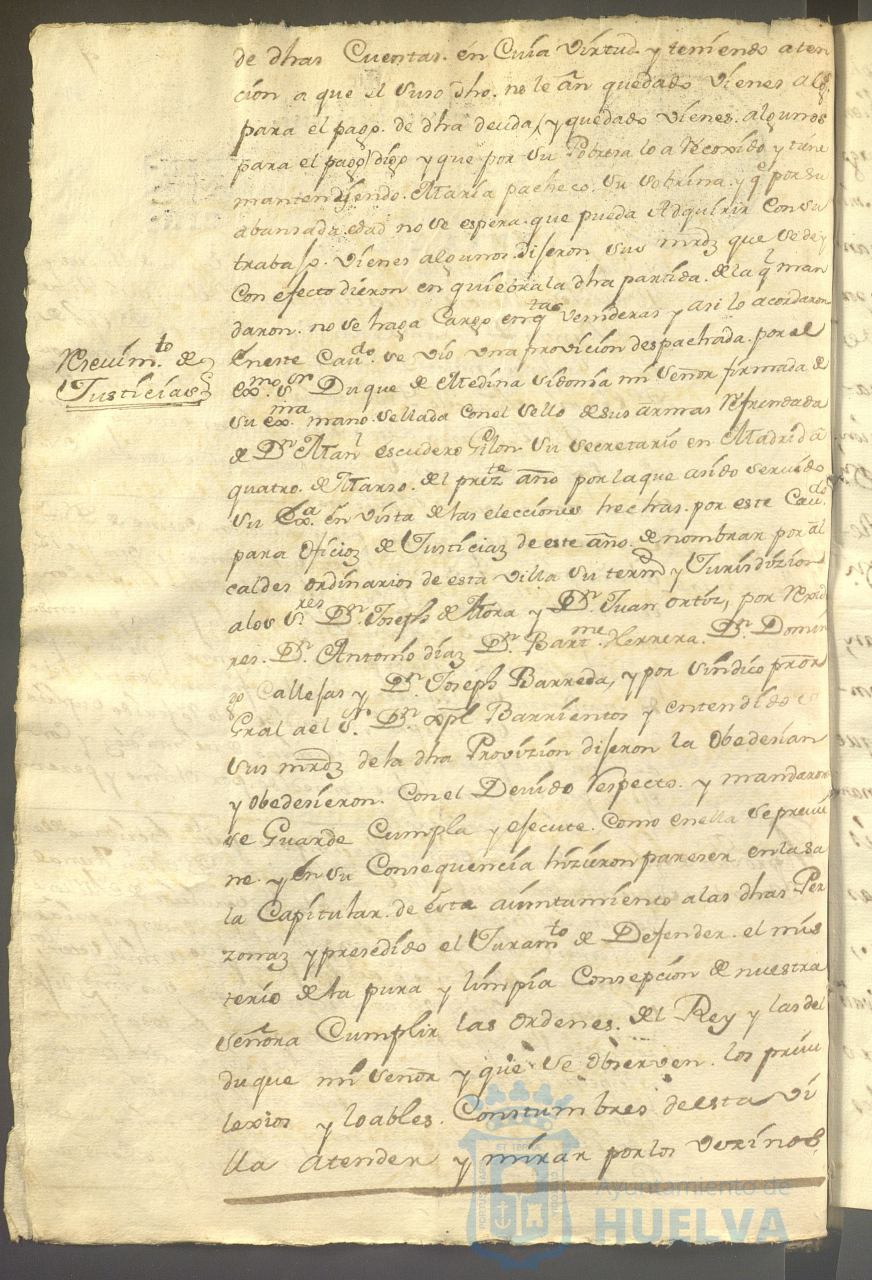 de dhas Cuentas. en Cuia Virtud. y teniendo aten
cion a que el suso dho. no le an quedado vienes algs.
para el pago. de dha deuda, (y quedado vienes. algunos
para el pago) digo y que por su Pobreza lo a Recoxido y tiene
manteniendo. Maria pacheco. su sobrina. y q por su
abansada edad no se espera. que pueda Adquirir con su
trabajo. vienes algunos. dijeron sus mrdz que se de y
Con efecto dieron en quiebra la dha partida. de la q man
daron. no se haga Cargo en qtas venideras y asi lo acordaron
Reciuimto. de
Justicias
En este Caudo. se vio una provicion despachada. por el
exmo. sr. Duque de Medina sidonia mi señor firmada de
su exma. mano. sellada con el sello de sus armas Refrendada
de Dn Manl escudero Gilon su secretario en Madrid a
quatro. de Marso. del prste. año por la que a sido seruido
su Exa. en vista de las elecciones hechas. por este Caudo.
para oficioz de Justiciaz de este año. de nombrar por al
caldes ordinarios de esta villa su termo y Jurisdizion
a los sres. Dn. Joseph de Mora y Dn. Juan ortiz, por Rexid
res. Dn. Antonio diaz Dn. Bartme. Herrera. Dn. Domin
go Callejas y Dn. Joseph Barreda, y por sindico pror
Gral a el sr. Dn. xpl Barrientos y entendido
sus mrdz de la dha Provizion dijeron la Obedesian
y obedesieron. Con el Deuido respecto. y mandaron
se Guarde Cumpla y execute. como en ella se preuie
ne. y en su Consequencia hizieron pareser en la sa
la Capitular. de este aiuntamiento a las dhas Per
zonaz y presedido el Juramto de Defender. el mis
terio de la pura y limpia Consepcion de nuestra
señora Cumplir las ordenes. del Rey y las del
duque mi señor y que se observen. los priui
lexios y loables. Constumbres de esta vi
lla atender y mirar por los vezinos,
Ayuntamiento de
HUELVA